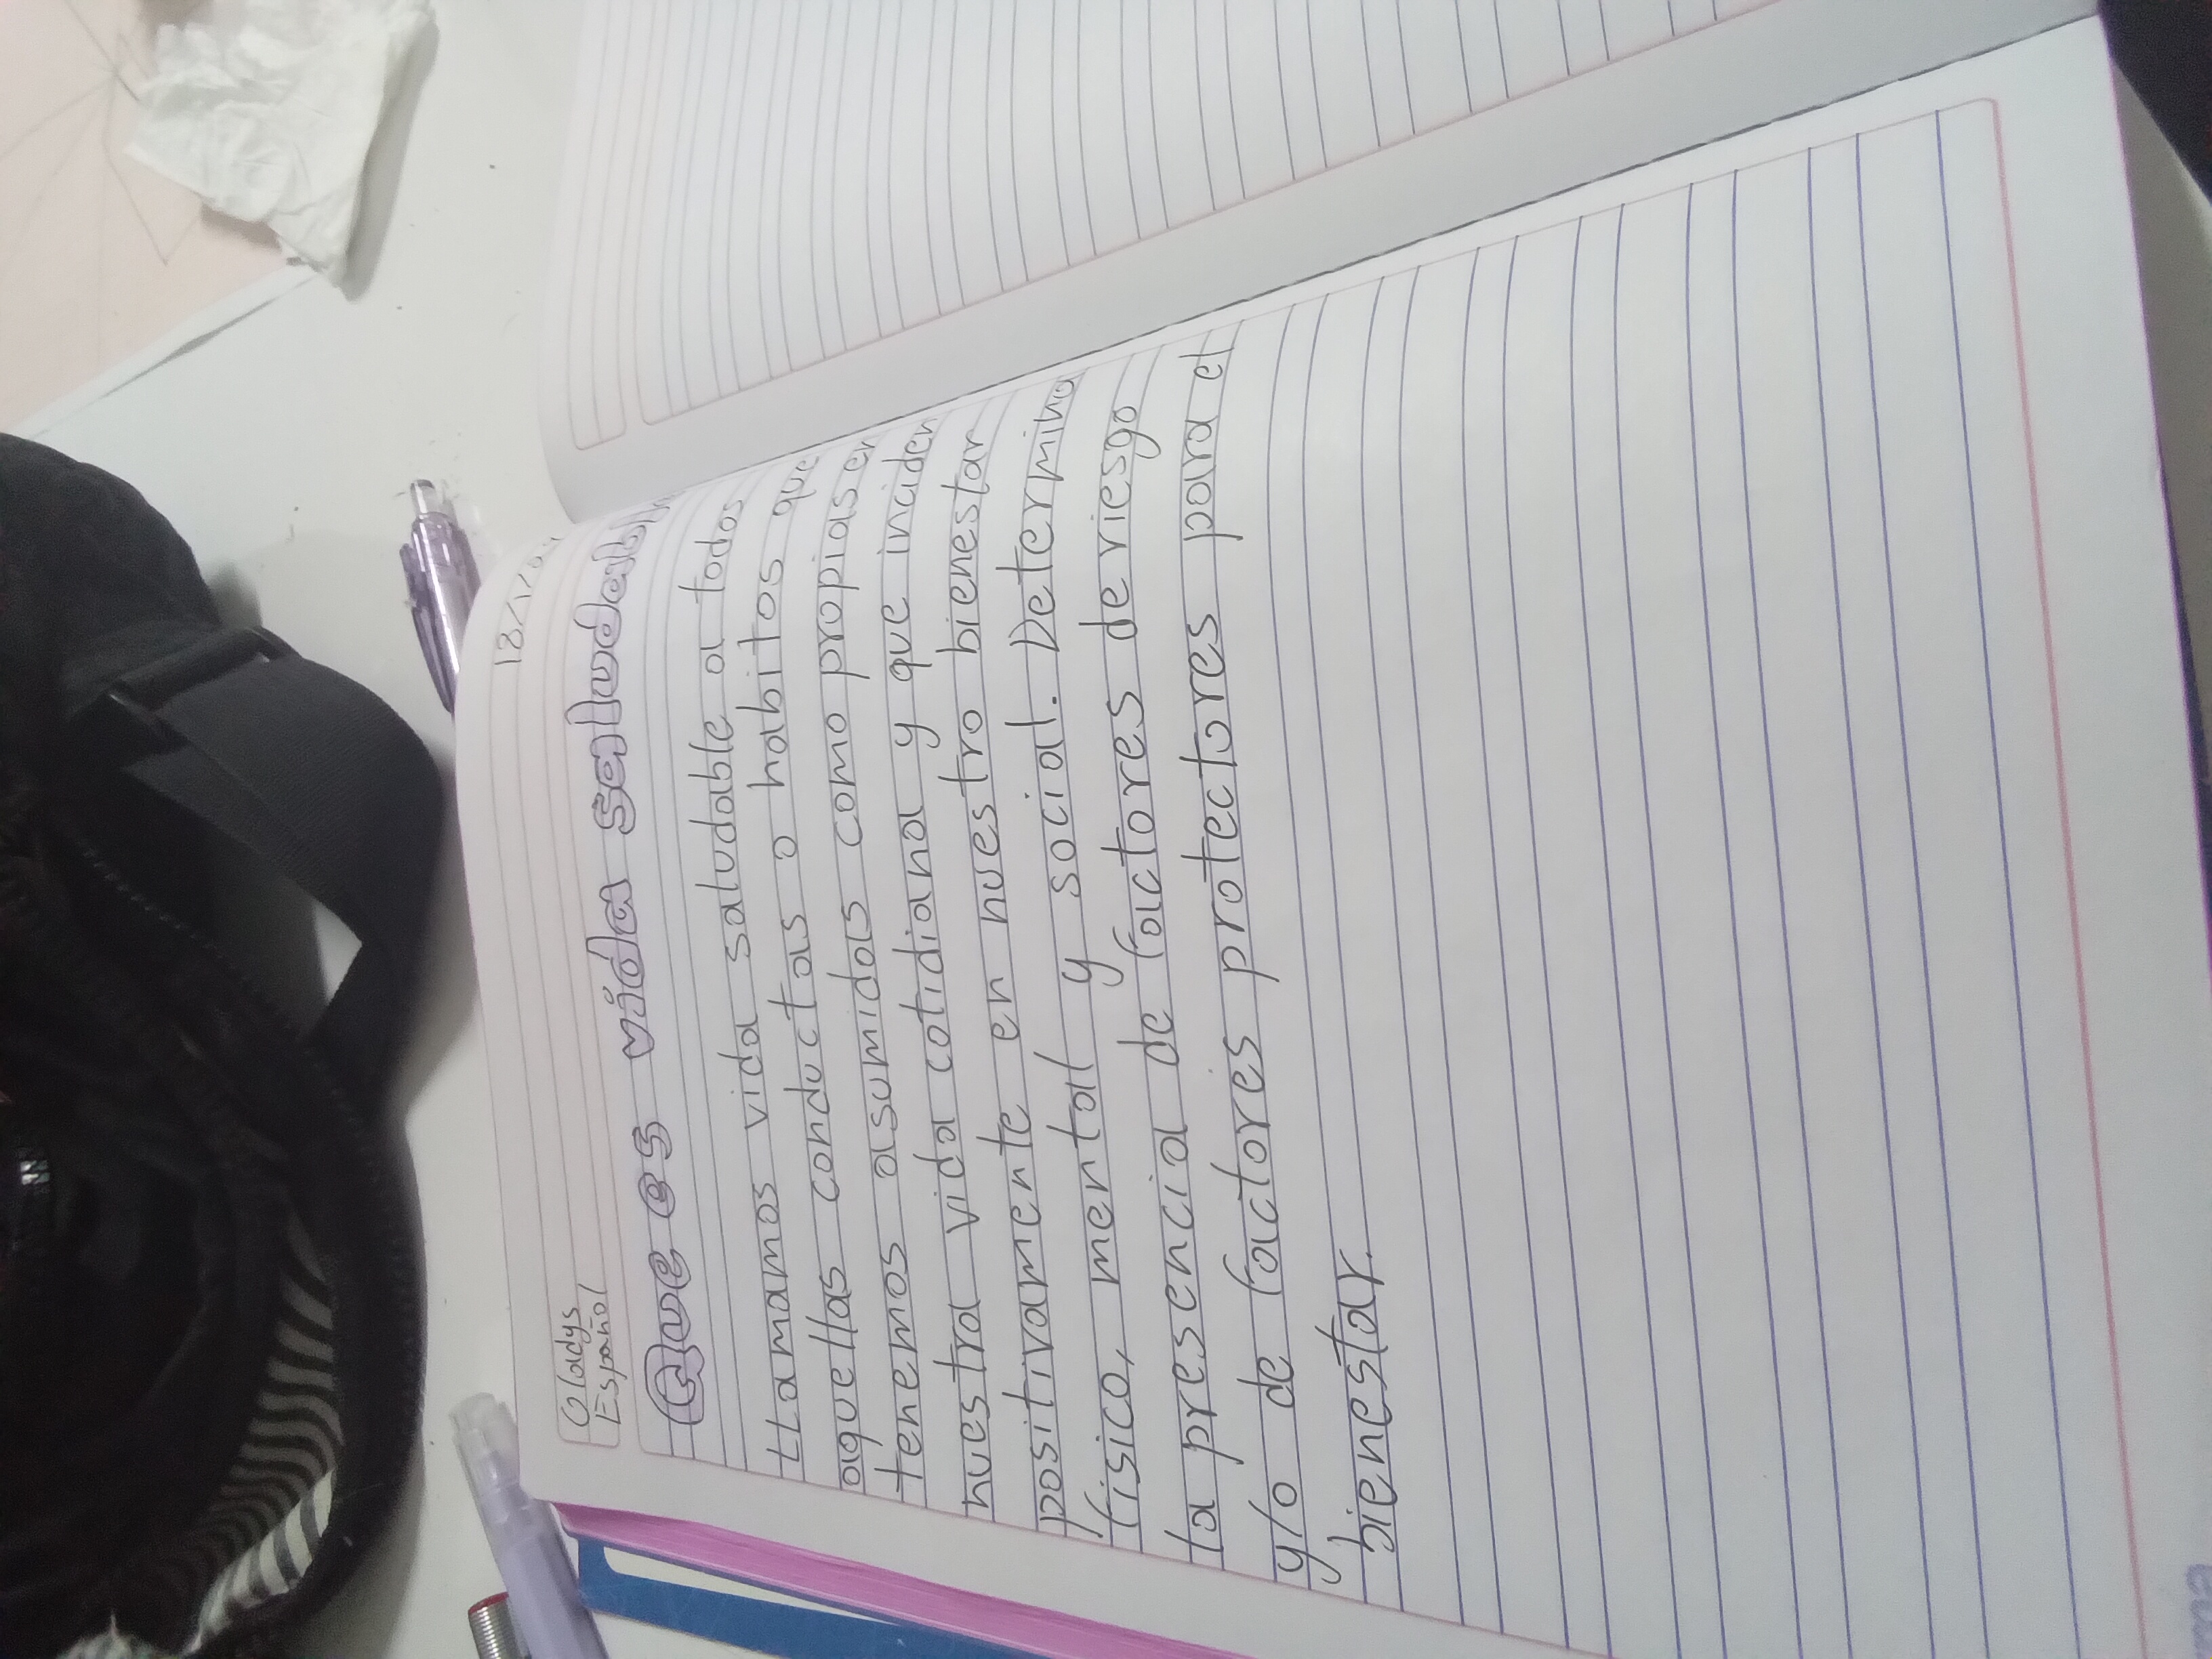 Gladys
Español
Que es vida saludable
LLamamos vida saludable a todos
aquellas conductas o habitos que
tenemos asumidas como propias en
nuestra vida cotidiana y que inciden
positivamente en nuestro bienestar
fisico, mental y social. Determina
la presencia de factores de riesgo
y/o de factores protectores para el
bienestar.